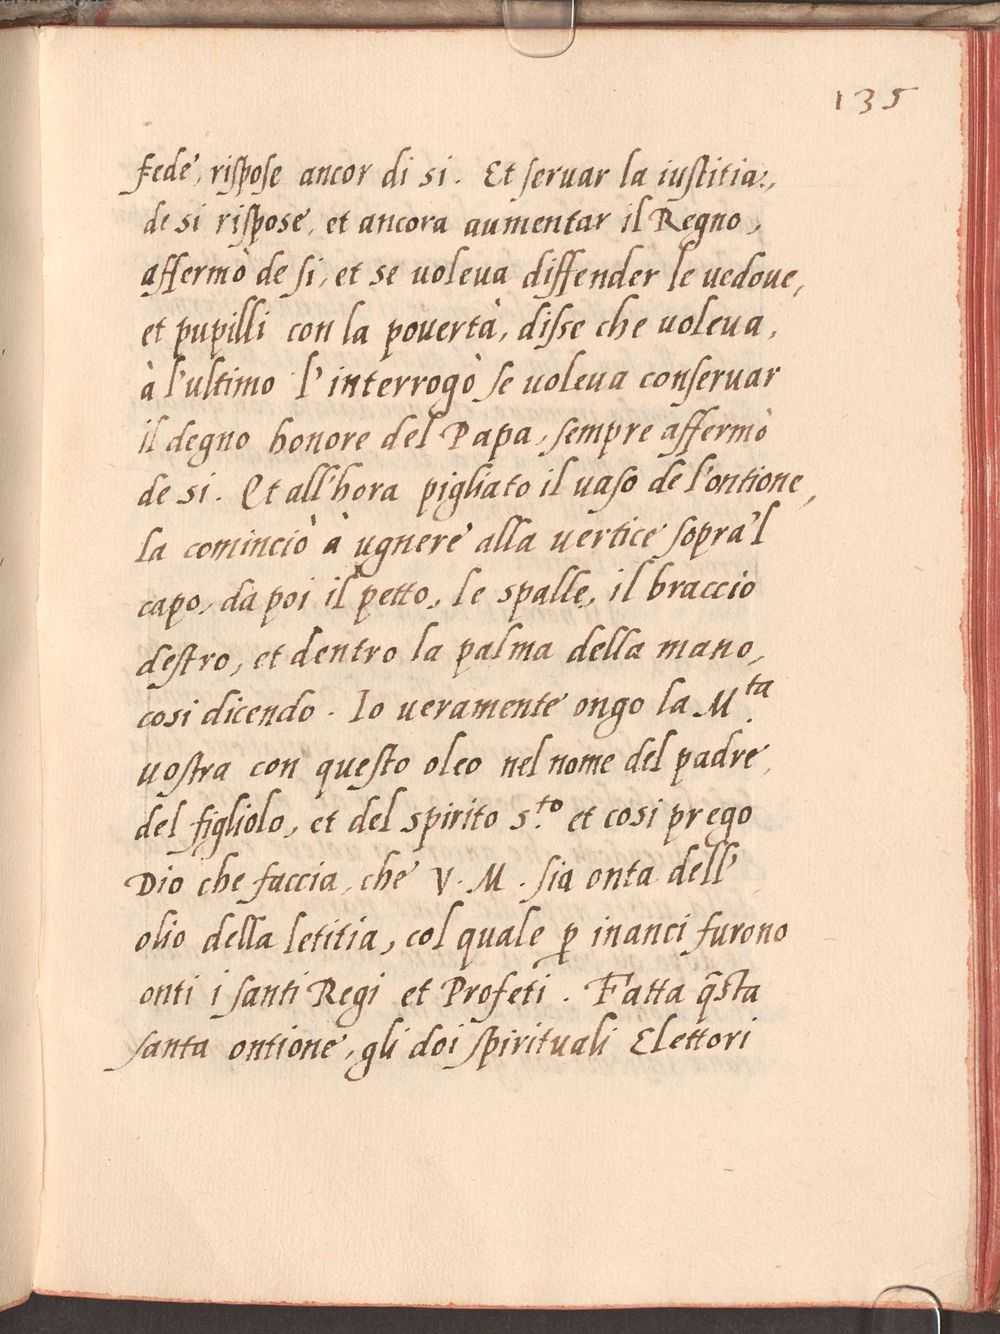 135
fede, rispose ancor di si. Et seruar la iustitia:,
de si rispose, et ancora aumentar il Regno,
affermò de si, et se uoleua diffender le uedoue,
et pupilli con la pouertà, disse che uoleua,
à l'ultimo l'interrogò se uoleua conseruar
il degno honore del Papa, sempre affermò
de si. Et all'hora pigliato il uaso de l'ontione,
la cominciò à ugnere alla vertice sopra'l
capo, da poi il petto, le spalle, il braccio
destro, et dentro la palma della mano,
cosi dicendo. Io ueramente ongo la M.ta
uostra con questo oleo nel nome del padre,
del figliolo, et del spirito s.to et cosi prego
Dio che faccia, che V. M. sia onta dell'
olio della letitia, col quale ꝑ inanci furono
onti i santi Regi et Profeti. Fatta q̃sta
santa ontione, gli doi spirituali Elettori